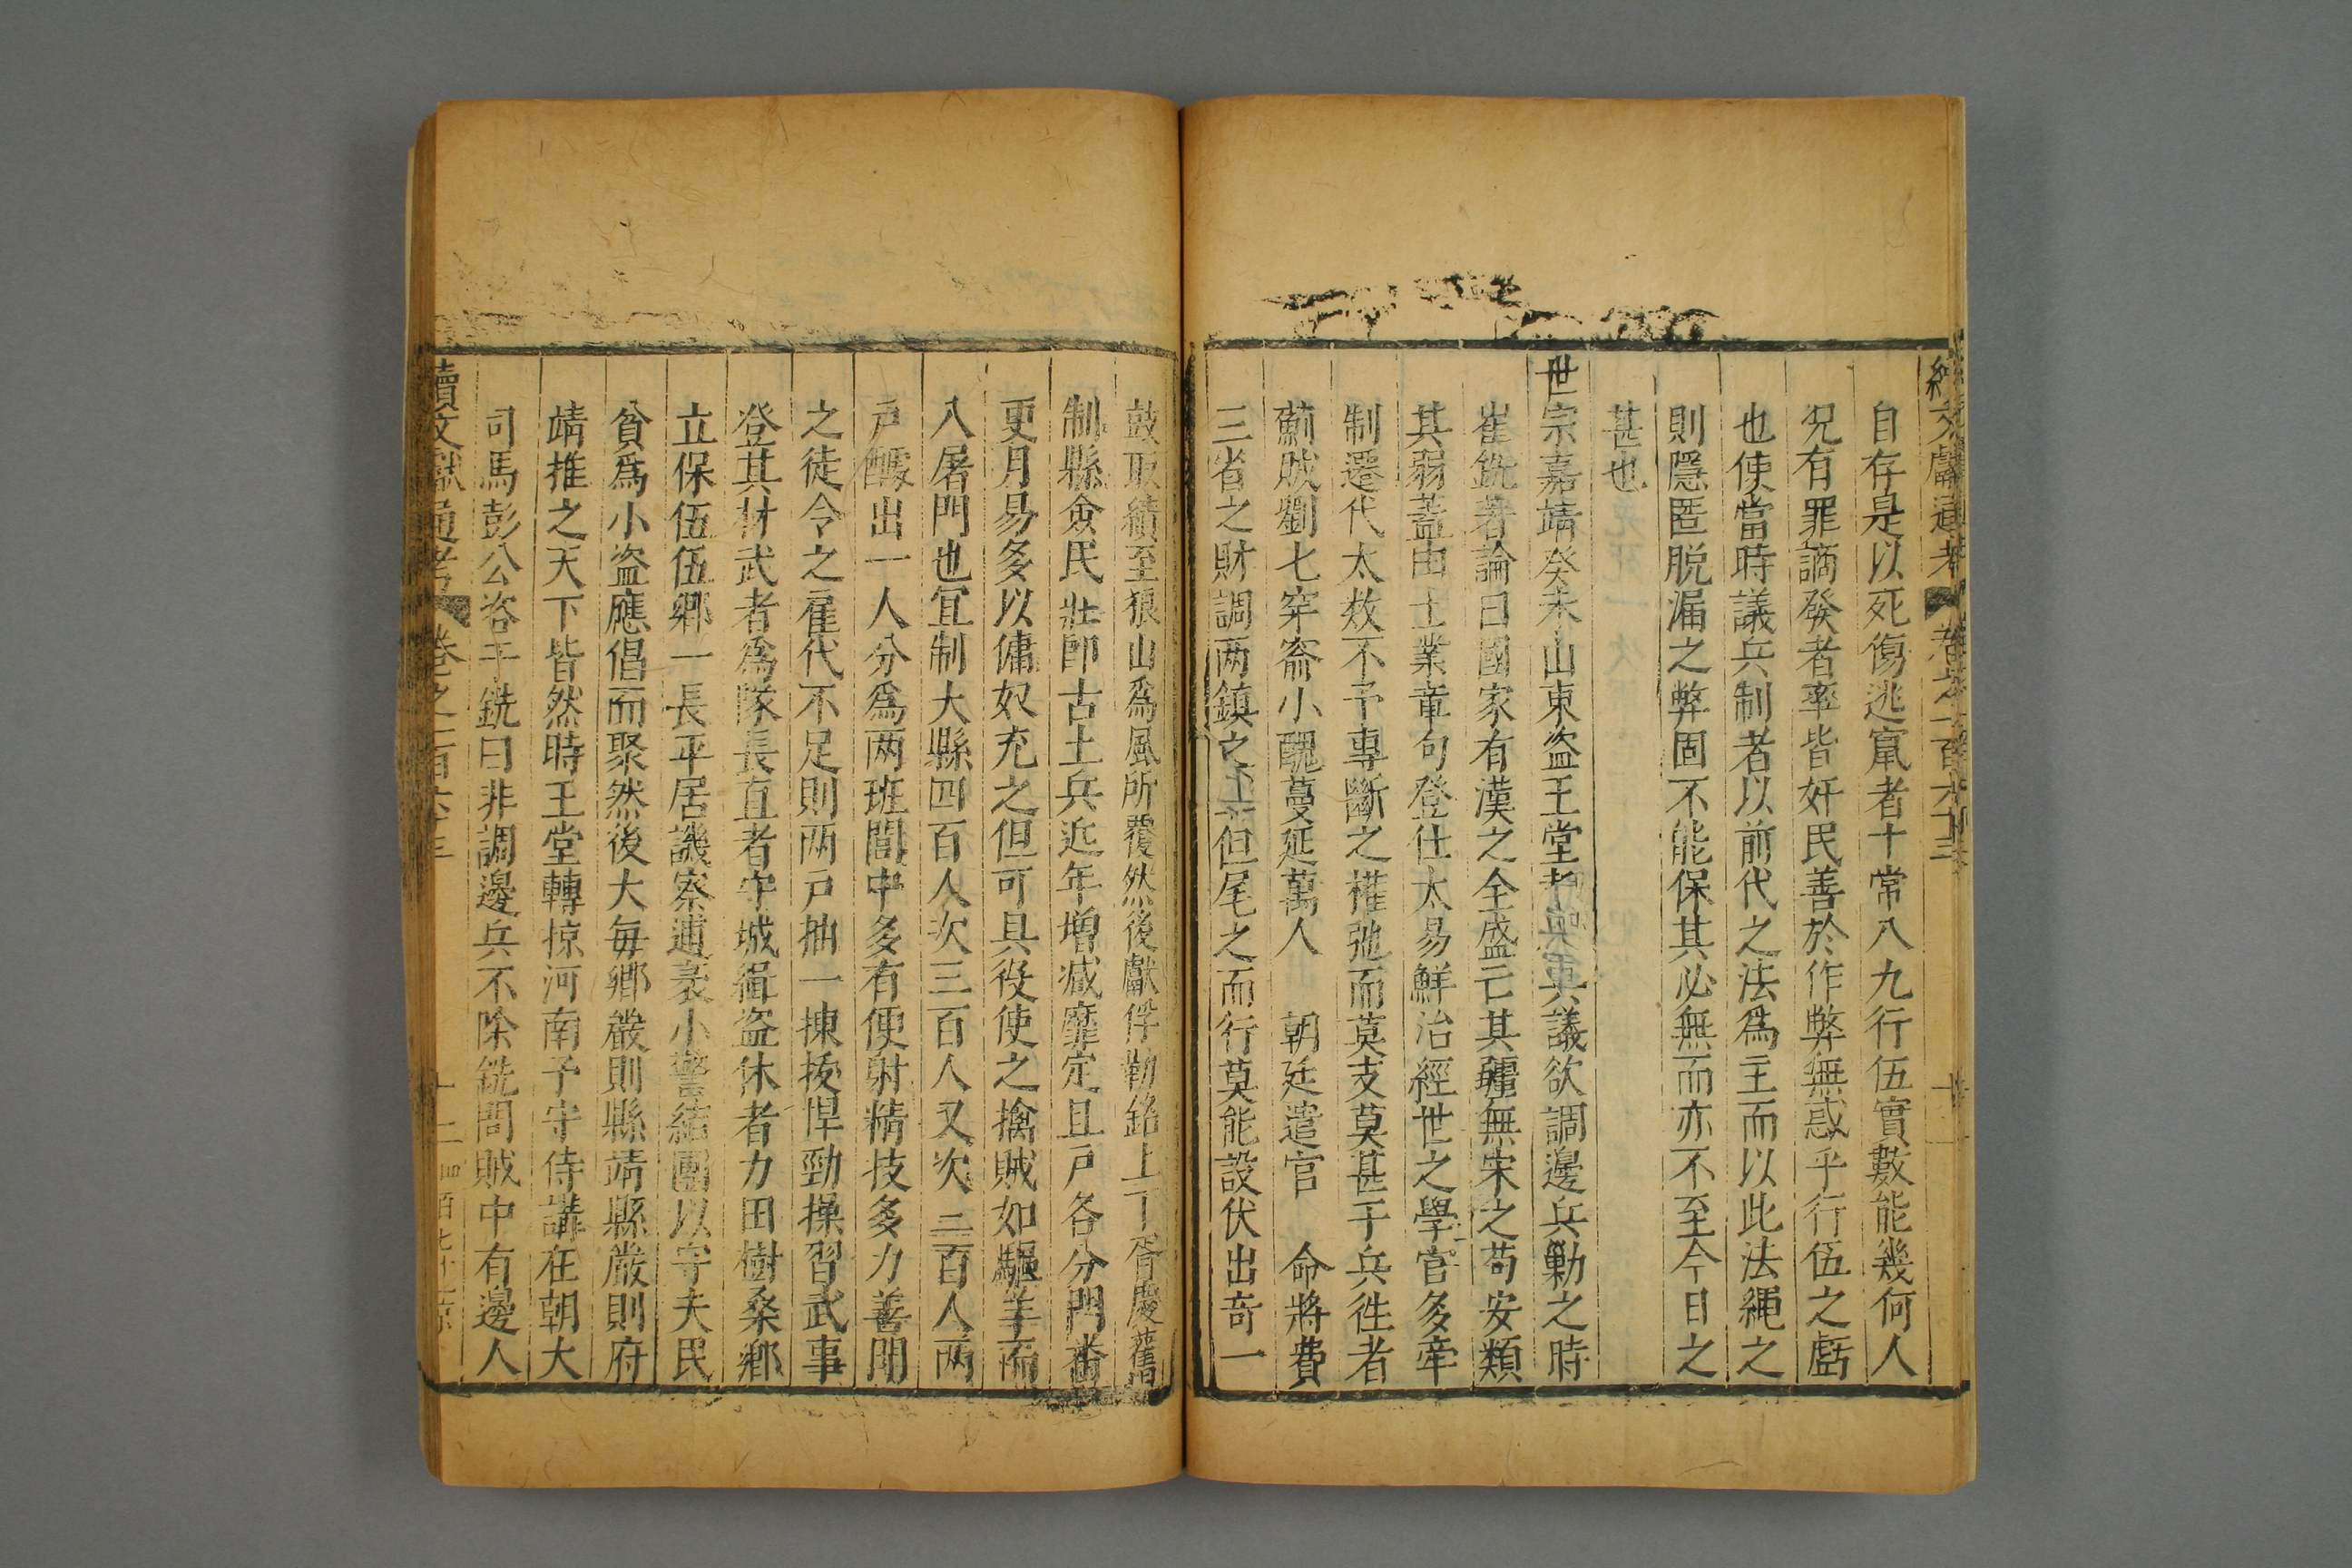 續文獻通考 卷之一百六十三
自存是以死傷逃竄者十常八九行伍實數能幾何人
況有罪謫發者率皆奸民善於作弊無惑乎行伍之虧
也使當時議兵制者以前代之法爲主而以此法繩之
則隱匿脱漏之弊固不能保其必無而亦不至今日之
甚也
世宗嘉靖癸未山東盗王堂者兵議欲調邊兵勦之時
崔銑著論曰國家有漢之全盛亡其疆無宋之苟安類
其弱蓋由士業章句登仕太易鮮治經世之學官多牽
制遷代太数不予專斷之權弛而莫支莫甚于兵徃者
薊賊劉七穿窬小醜蔓延萬人 朝廷遣官 命將費
三省之財調两鎮之 但尾之而行莫能設伏出奇一
鼓取績至狼山爲風所覆然後獻俘勒銘上下胥慶舊
制縣僉民壯即古土兵近年增减靡定且戸各分門番
更月易多以傭奴充之但可具役使之擒賊如驅羊而
入屠門也宜制大縣四百人次三百人又次二百人两
戸醵出一人分爲两班閭中多有便射精技多力善鬪
之徒令之雇代不足則两戸抽一揀㧞悍勁操習武事
登其材武者爲隊長直者守城緝盗休者力田樹桑鄉
立保伍伍鄉一長平居譏察逋藂小警結團以守夫民
貧爲小盗應倡而聚然後大毎鄉嚴則縣靖縣嚴則府
靖推之天下皆然時王堂轉掠河南予守侍講在朝大
司馬彭公咨于銑曰非調邊兵不除銑問賊中有邊人
續文獻通考 卷之一百六十三 十二